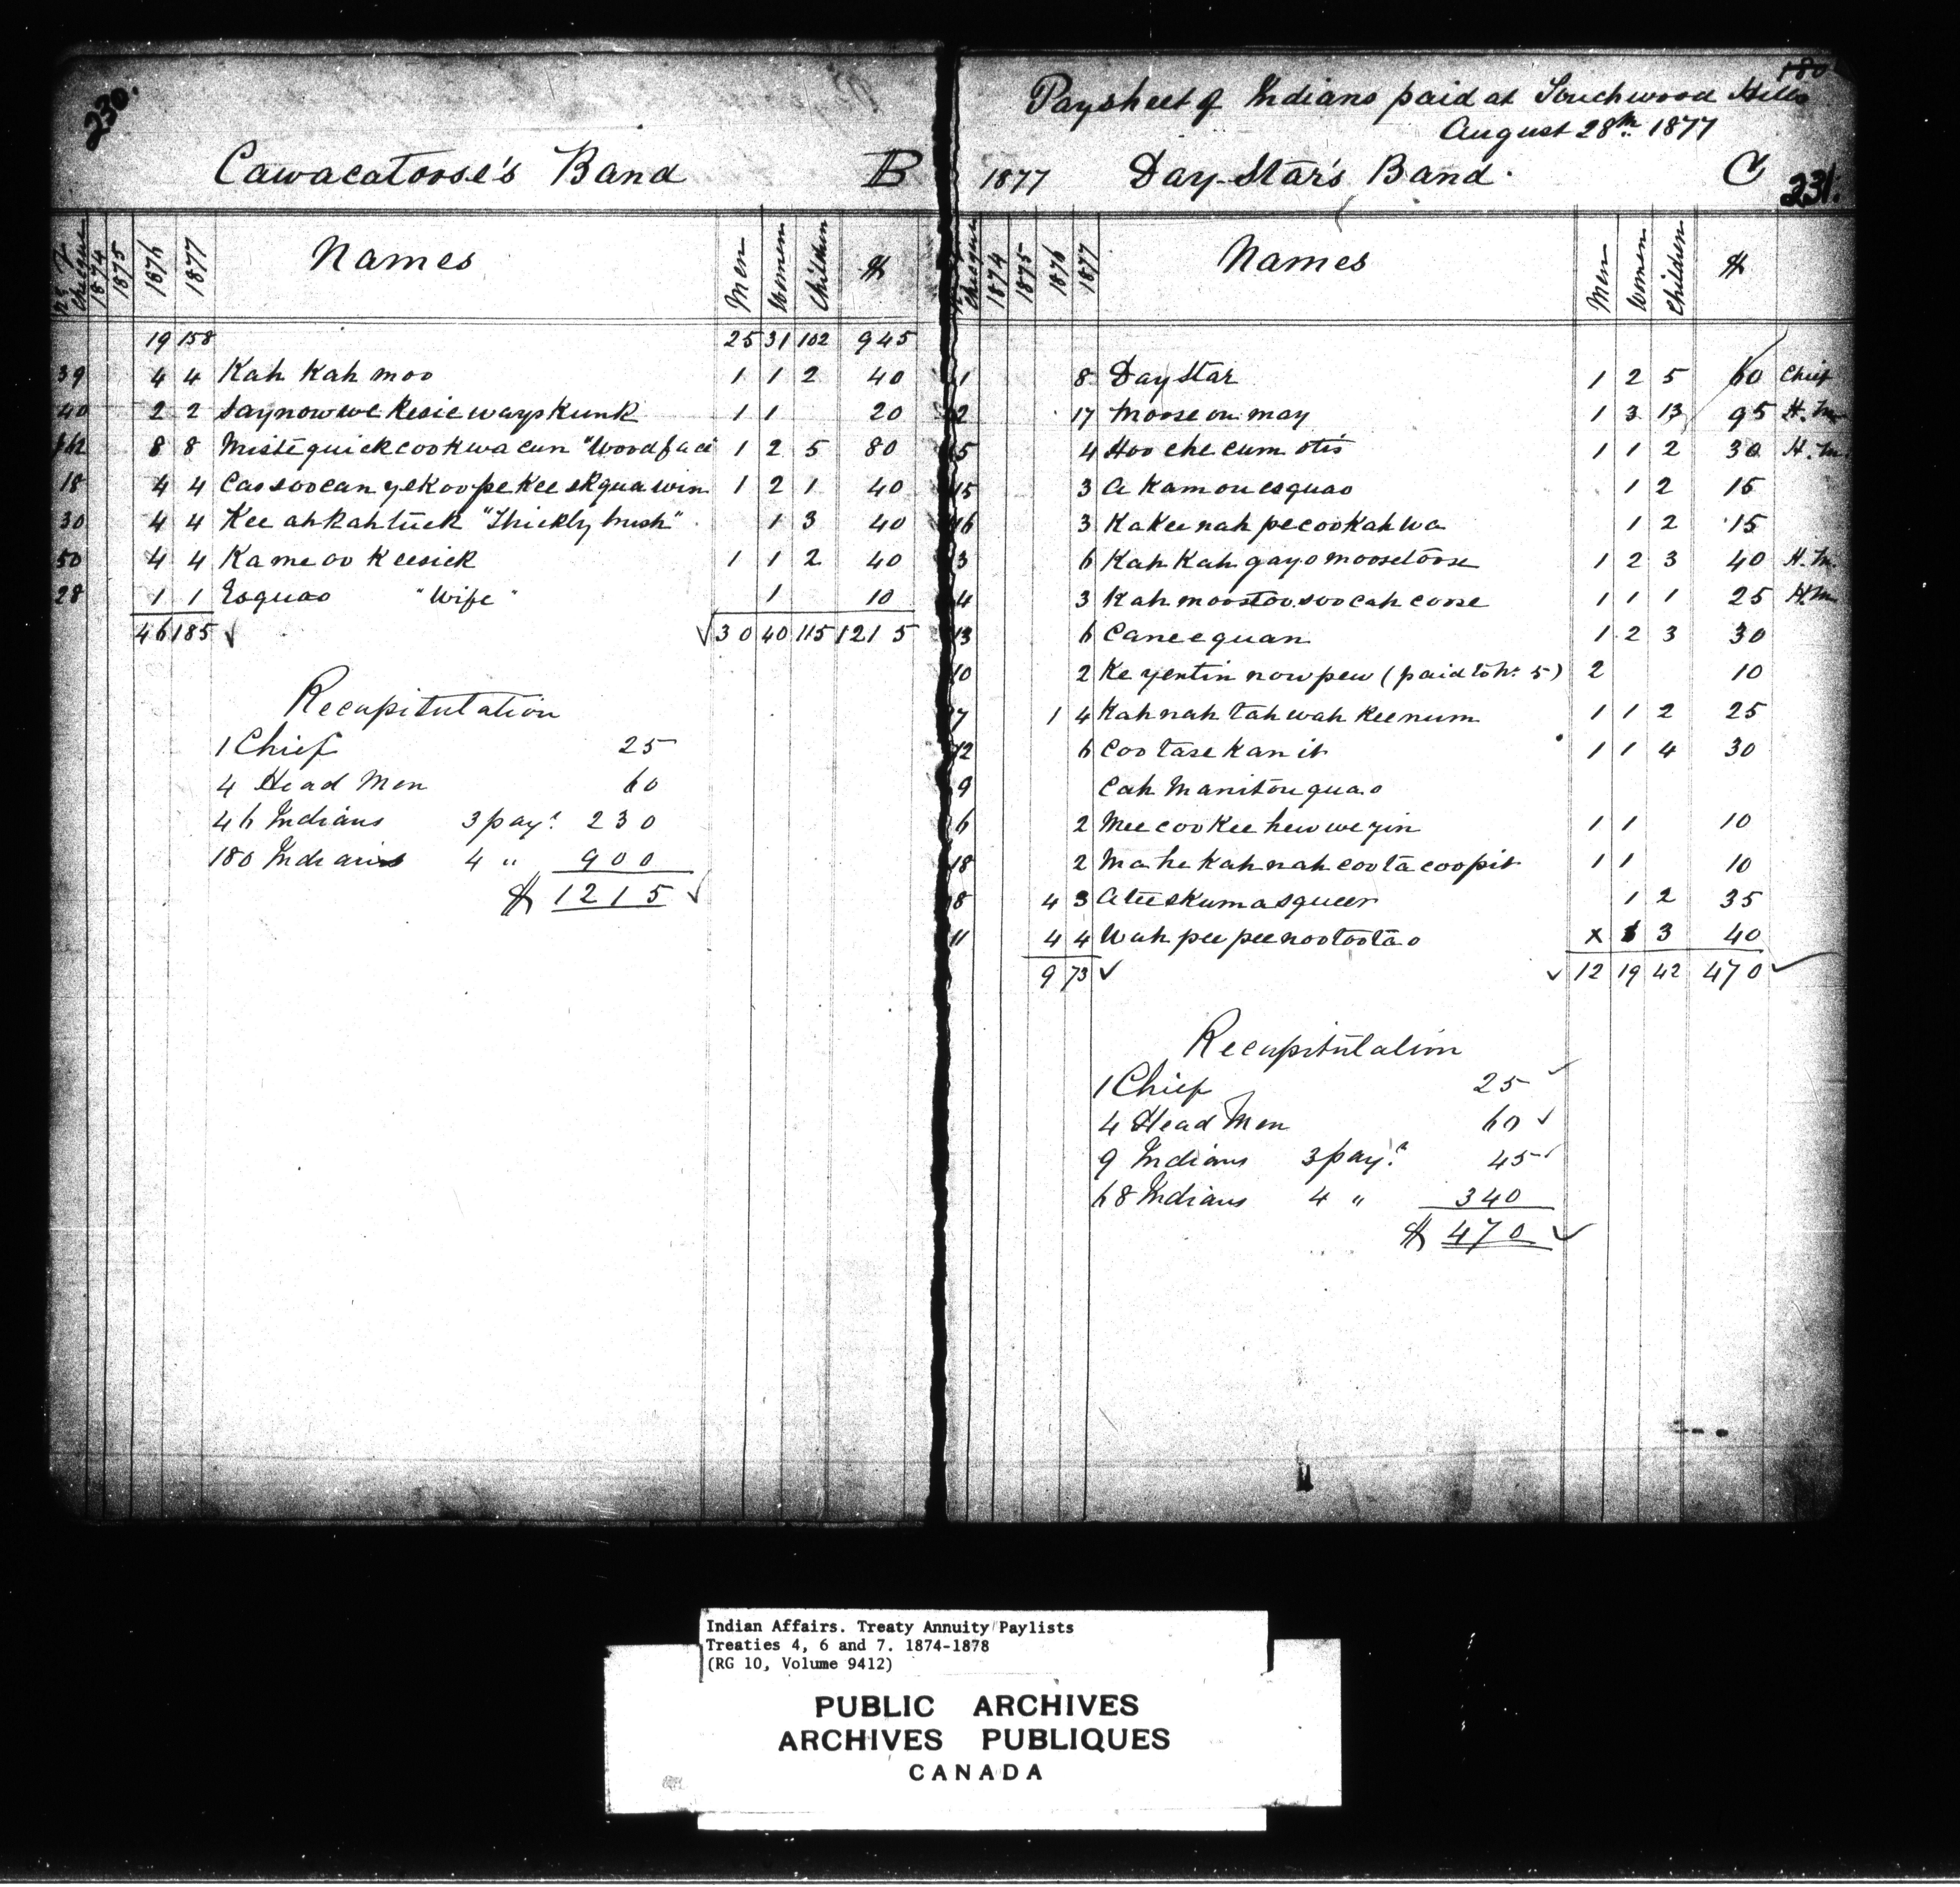 230.
Cawacatoose's Band B
No. of Cheque 1874 1875 1876 1877 Names Men Women Children $
19 158 25 31 102 945
39 4 4 Kah Kah moo 1 1 2 40
40 2 2 Saynowwe Kesic wayskunk 1 1 20
8 8 Mistequickcookwacun "Woodface 1 2 5 80
18 4 4 Caosoocan yekoopeKee skquawin 1 2 1 40
30 4 4 Kee ahkahtuck "Thickly brush" 1 3 40
50 4 4 Kameoo Keesick 1 1 2 40
28 1 1 Esquao "Wife" 1 10
46 185 ✓ ✓ 30 40 115 1215
Recapitulation
1 Chief 25
4 Head Men 60
46 Indians 3 payts 230
180 Indians 4 " 900
$ 1215 ✓
180
Paysheet of Indians paid at Touchwood Hills
August 28th 1877
1877 Day Star's Band. C 231.
Cheque 1874 1875 1876 1877 Names Men Women Children $
1 8 Day Star 1 2 5 60 Chief
2 17 Moose on may 1 3 13 95 H.M.
5 4 Hoo che cum otis 1 1 2 30 H.M.
15 3 A Kamouesquao 1 2 15
16 3 KaKee nah pecookahwa 1 2 15
3 6 Kah Kah gayo moosetoose 1 2 3 40 H.M.
4 3 Kah moostoosoocah coose 1 1 1 25 H.M.
13 6 Caneequan 1 2 3 30
10 2 Ke yentin nowpew (paid to No. 5) 2 10
7 1 4 Kahnah tah wah Keenum 1 1 2 25
12 6 Coo tase kan it 1 1 4 30
9 Cah Manitouquao
6 2 Mee coo Kee hew we yin 1 1 10
18 2 Ma he Kah nah coota coopit 1 1 10
8 4 3 Ateeskumasqueen 1 2 35
11 4 4 Wah pee pee nootootao x 1 3 40
9 73 ✓ ✓ 12 19 42 470 ✓
Recapitulation
1 Chief 25 ✓
4 Head Men 60 ✓
9 Indians 3 payts 45 ✓
68 Indians 4 " 340
$ 470 ✓
Indian Affairs. Treaty Annuity Paylists
Treaties 4, 6 and 7. 1874-1878
(RG 10, Volume 9412)
PUBLIC ARCHIVES
ARCHIVES PUBLIQUES
CANADA